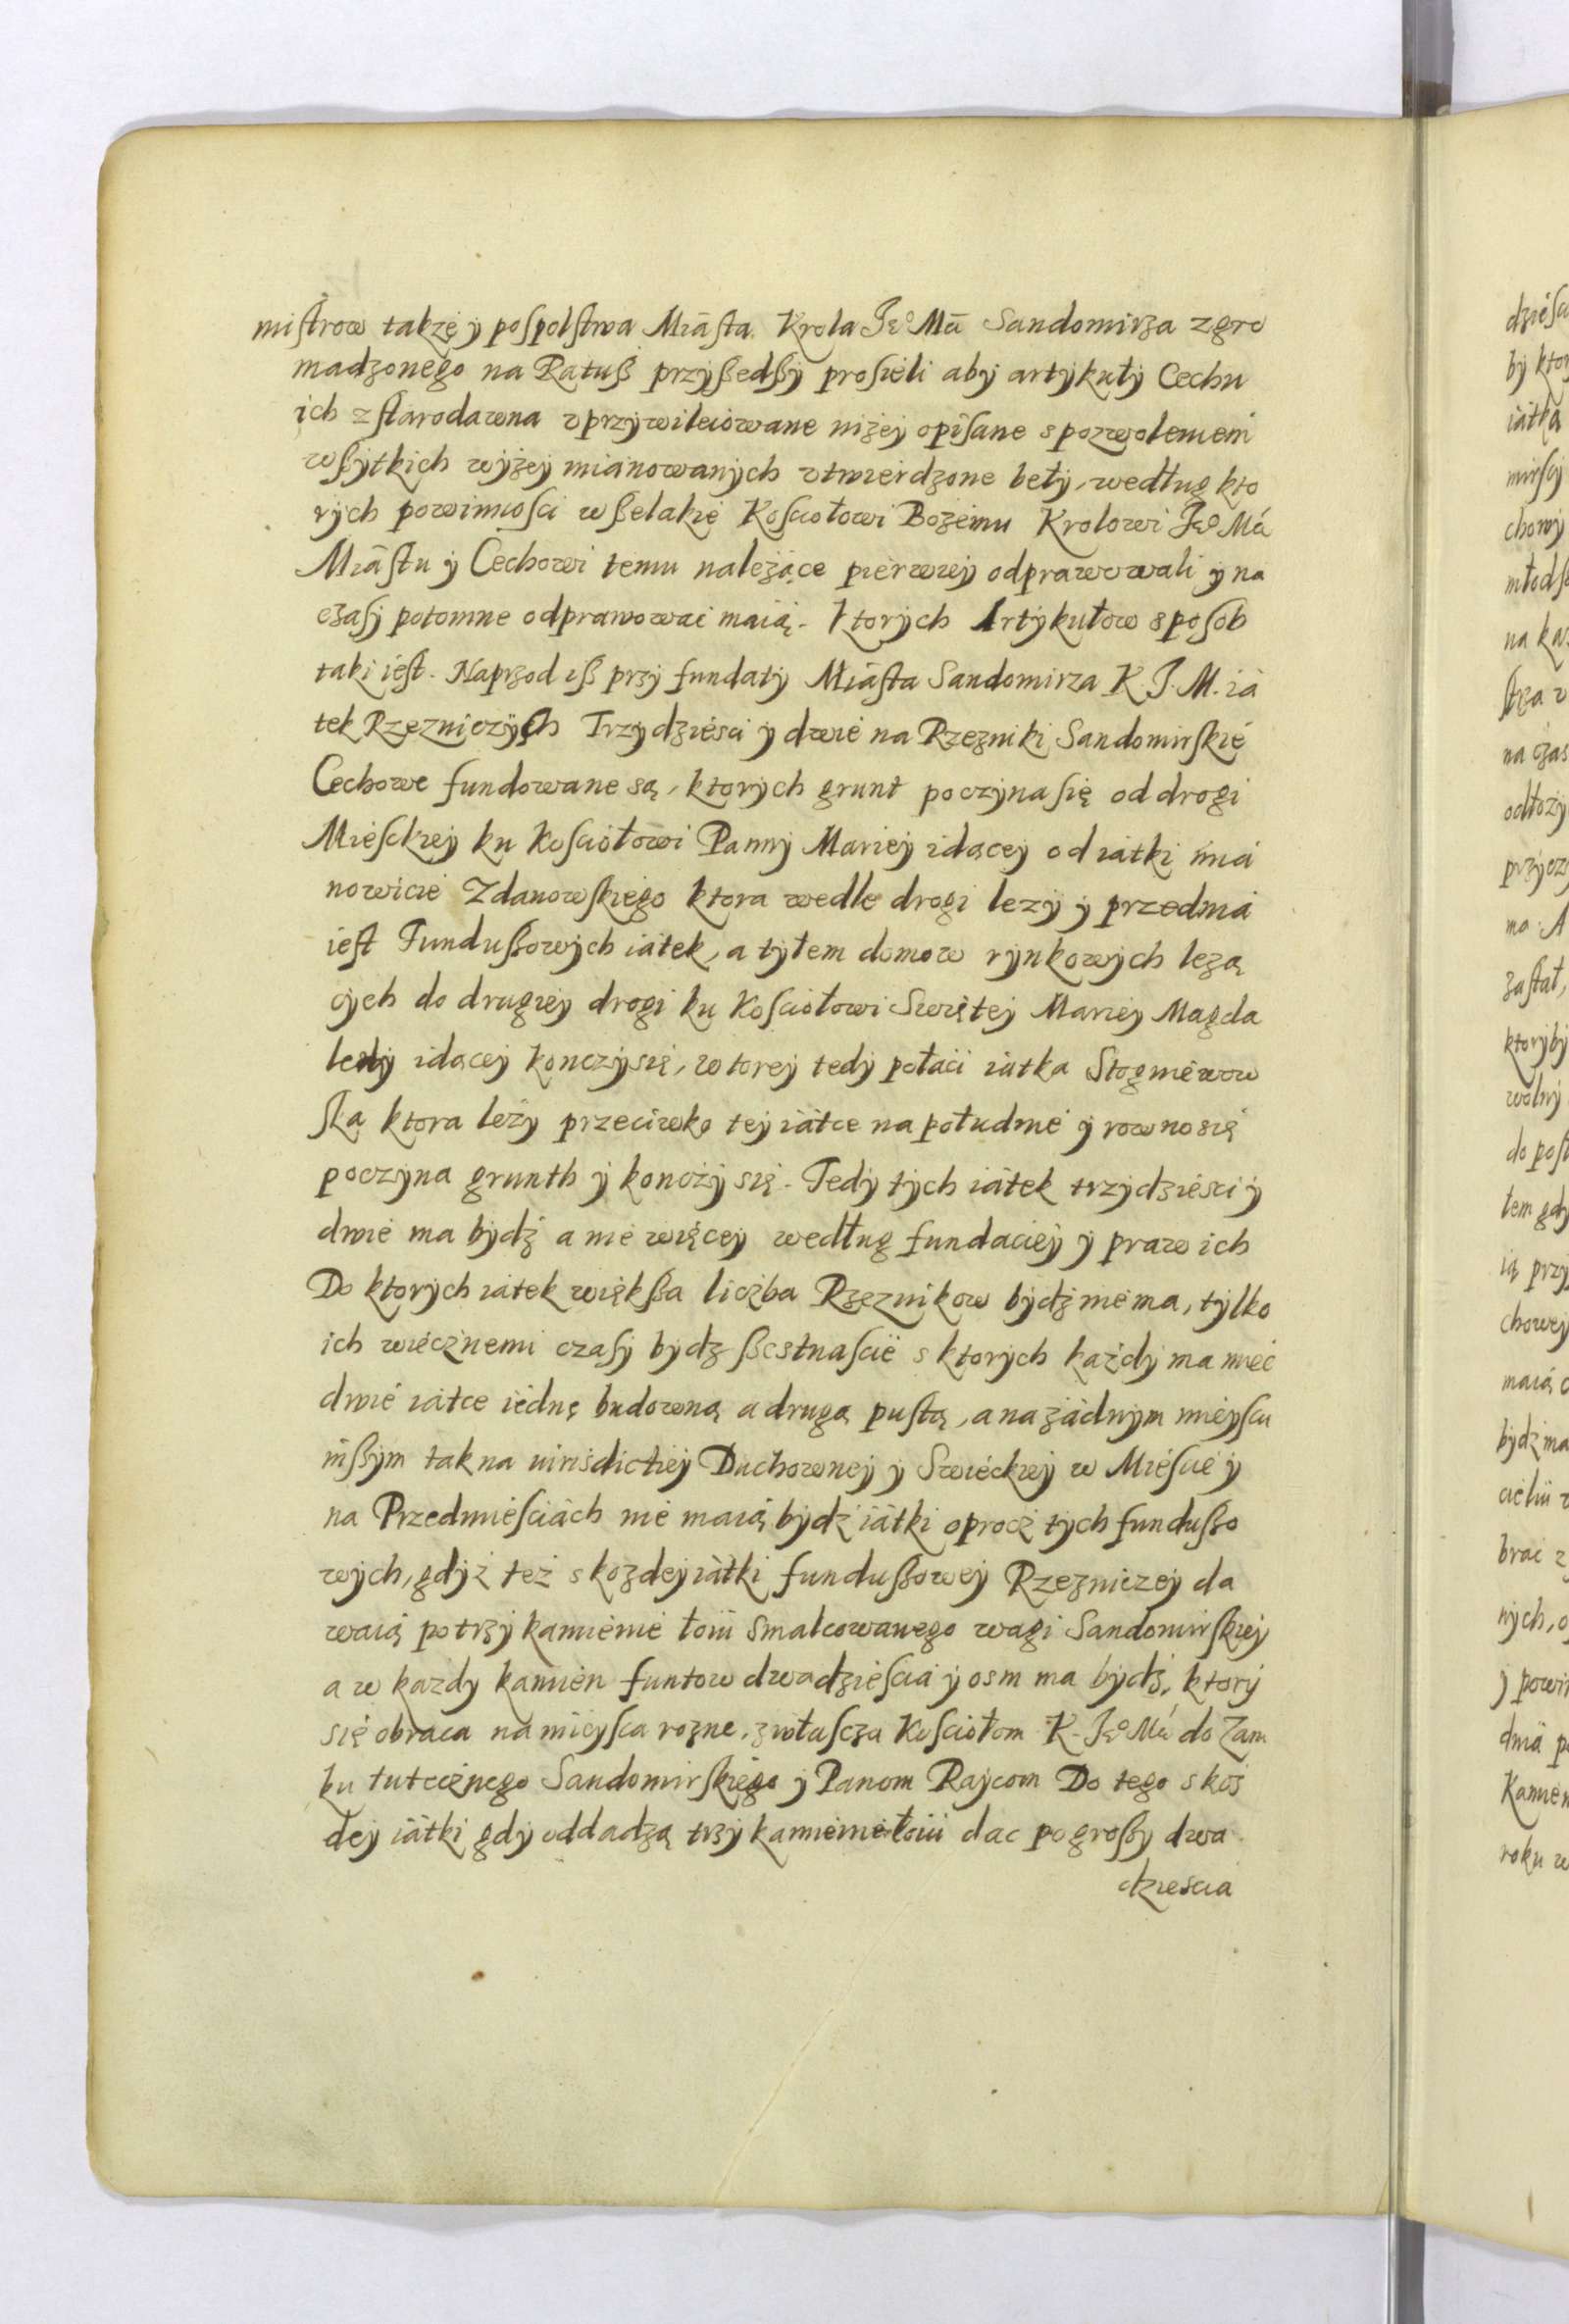 mistrow takzę y pospolstwa Miasta Krola Jeo Mā Sandomirza zgro
madzonego na Ratuß przyßedßy prosieli aby artykuły Cechu
ich z starodawna vprzywileiowane niżey opisane s pozwoleniem
wßytkich wyżey mianowanych vtwierdzone beły, według kto
rych powinności wßelakie Kosciołowi Bożemu Krolowi Jeo Má
Miāstu y Cechowi temu należące pierwiey odprawowali y na
czasy potomne odprawować maią. Ktorych Artykułow sposob
taki iest. Naprzod iß przy fundaty Miāsta Sandomirza K. J. M. ia
tek Rzezniczych Trzydziesci y dwie na Rzezniki Sandomirskie
Cechowe fundowane są, ktorych grunt poczyna się od drogi
Miesckiey ku Kosciołowi Panny Mariey idącey od iatki mia
nowicie Zdanowskiego ktora wedle drogi lezy y przednia
iest Fundußowych iatek, a tyłem domow rynkowych lezą
cych do drugiey drogi ku Kosciołowi Swiętey Mariey Magda
leny idącey konczy się, w torey tedy połaci iatka Stogniewow
ska ktora leży przeciwko tey iatce na południe y rowno się
poczyna grunth y konczy się. Tedy tych iatek trzydziesci y
dwie ma bydź a nie więcey według fundaciey y praw ich
Do ktorych iatek więkßa liczba Rzeznikow bydź nie ma, tylko
ich wiecznemi czasy bydz ßestnascie s ktorych każdy ma mieć
dwie iatce iednę budowną a drugą pustą, a na żadnym mieyscu
inßym tak na iurisdictiey Duchowney y Swieckiey w Miescie y
na Przedmiesciach nie maią bydź iatki oprocz tych fundußo
wych, gdyż też s kozdey iatki fundußowey Rzezniczey da
waią po trzy kamienie łoiu smalcowanego wagi Sandomirskiey
a w kazdy kamien funtow dwadziescia y osm ma bydź, ktory
się obraca na mieysca rozne, zwłascza Kosciołom K. Jeo Má do Zam
ku tutecznego Sandomirskiego y Panom Raycom Do tego s koż
dey iatki gdy oddadzą trzy kamienie łoiu dac po großy dwa
dziescia